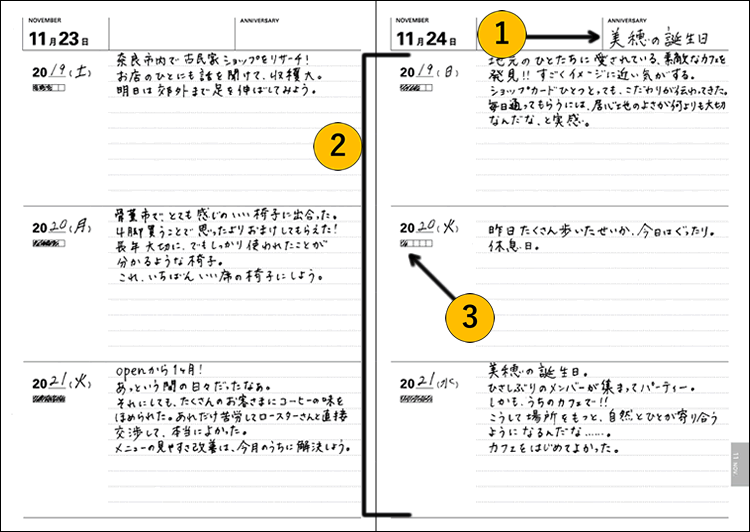 NOVEMBER
11月23日
ANNIVERSARY
2019(土)
奈良市内で古民家ショップをリサーチ!
お店のひとにも話を聞けて、収穫大。
明日は郊外まで足を伸ばしてみよう。
2020(月)
骨董市で、とても感じのいい椅子に出合った。
4脚買うことで思ったよりおまけしてもらえた!
長年大切に、でもしっかり使われたことが
分かるような椅子。
これ、いちばんいい席の椅子にしよう。
2021(火)
openから1ヶ月!
あっという間の日々だったなぁ。
それにしても、たくさんのお客さまにコーヒーの味を
ほめられた。あれだけ苦労してロースターさんと直接
交渉して、本当によかった。
メニューの見やすさ改善は、今月のうちに解決しよう。
2
NOVEMBER
11月24日
1
ANNIVERSARY
美穂の誕生日
2019(日)
地元のひとたちに愛されている、素敵なカフェを
発見!!すごくイメージに近い気がする。
ショップカードひとつとっても、こだわりが伝わってきた。
毎日通ってもらうには、居心地のよさが何よりも大切
なんだな、と実感。
2020(火)
昨日たくさん歩いたせいか、今日はぐったり。
休息日。
3
2021(水)
美穂の誕生日。
ひさしぶりのメンバーが集まってパーティー。
しかも、うちのカフェで!!
こうして場所をもっと、自然とひとが寄り合う
ようになるんだな……。
カフェをはじめてよかった。
11 NOV